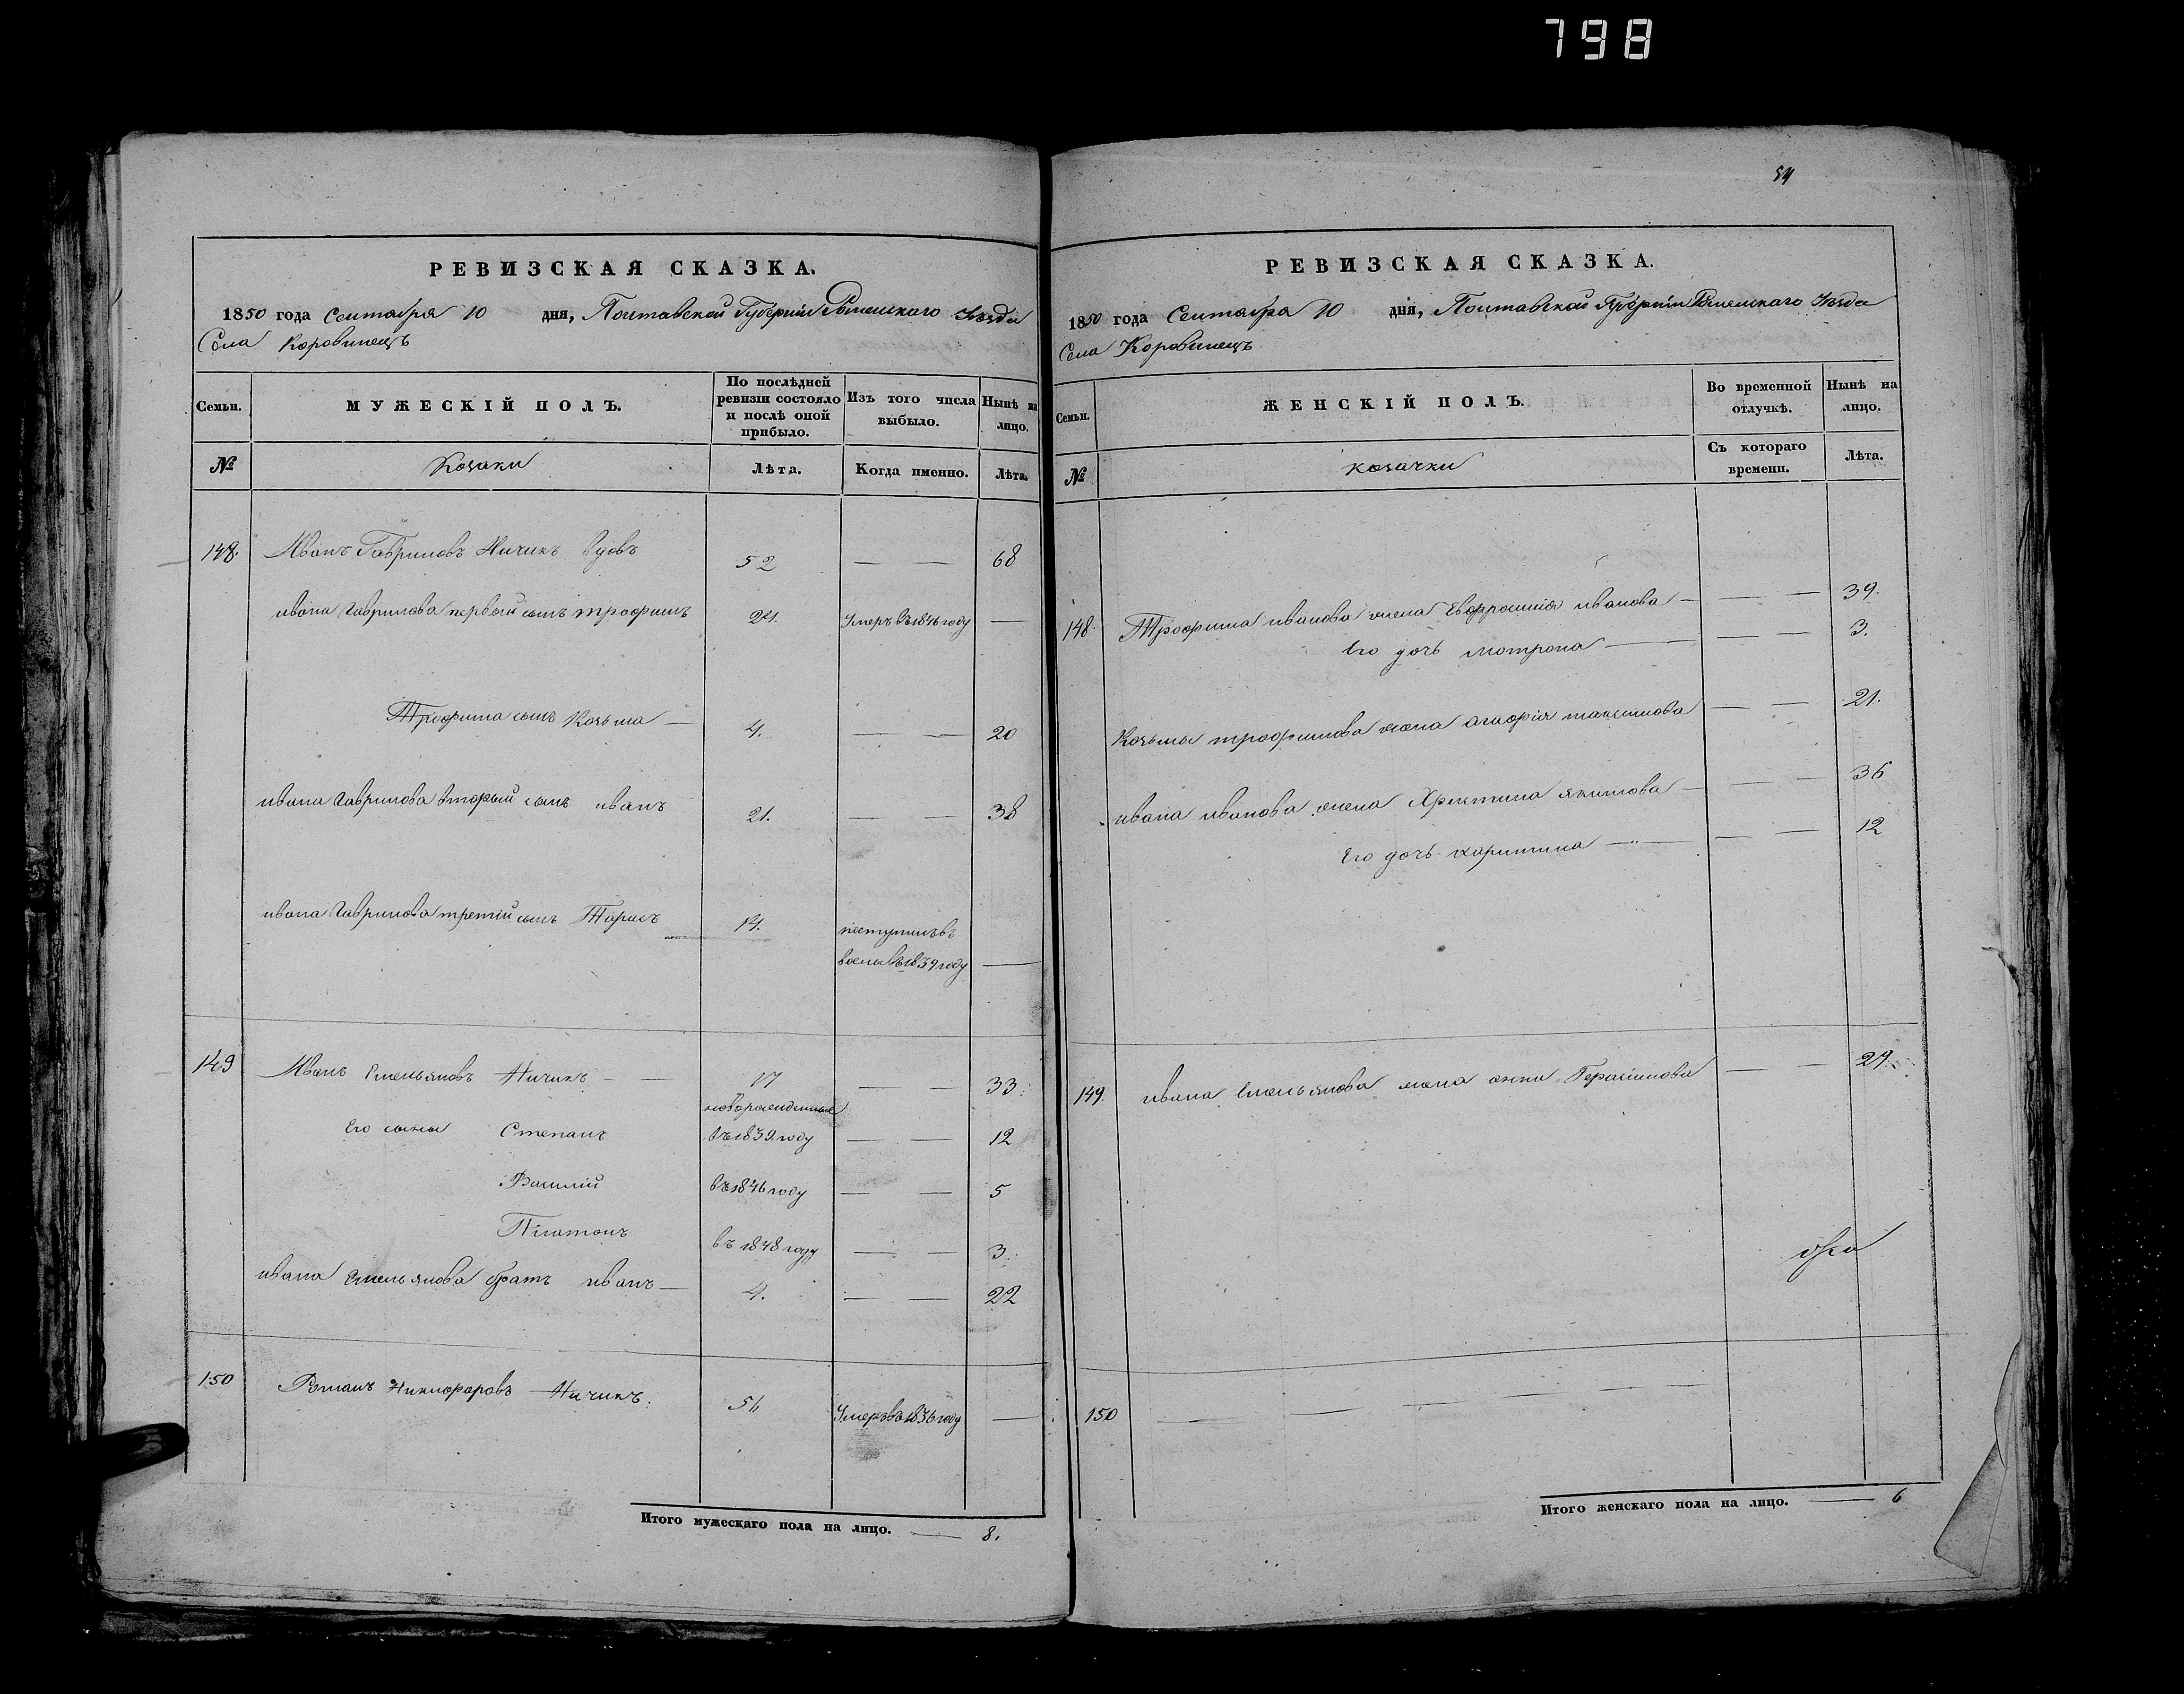 798
РЕВИЗСКАЯ СКАЗКА.
1850 года Сентября 10 дня, Полтавской Губерніи Роменского Уезда
Села Коровинецъ
Семьи.
МУЖЕСКІЙ ПОЛЪ.
По послѣдней ревизіи состояло и послѣ оной прибыло.
Изъ того числа выбыло.
Нынѣ на лицо.
№
Козаки
Лѣта.
Когда именно.
Лѣта.
148. Иванъ Гавриловъ Ничикъ вдовъ 52 — — 68
ивана Гаврилова первый сынъ трофимъ 24. Умеръ въ 1846 году —
Трофима сынъ Козьма — 4. — — 20
ивана Гаврилова вторый сынъ иванъ 21. — — 38
ивана Гаврилова третій сынъ Тарасъ 14. поступилъ въ
въ 1839 году —
149 Иванъ Емельяновъ Ничикъ — — 17 — — 33
новорожденные
Его сыны Степанъ въ 1839 году — — 12
Василій въ 1846 году — — 5
Платонъ въ 1848 году — — 3
ивана Емельянова братъ иванъ — 4. — — 22
150 Романъ Никифоровъ Ничикъ. 56 Умеръ въ 1836 году —
Итого мужескаго пола на лицо. — 8.
54
РЕВИЗСКАЯ СКАЗКА.
1850 года Сентября 10 дня, Полтавской Губерніи Роменскаго Уезда
Села Коровинецъ
Семьи.
ЖЕНСКІЙ ПОЛЪ.
Во временной отлучкѣ.
Нынѣ на лицо.
№
козачки
Съ котораго времени.
Лѣта.
148. Трофима иванова жена Евфросинія иванова — — — 39.
Его дочь мотрона — — — 3.
Козьмы трофимова жена агафія максимова — — 21.
ивана иванова жена Христина якимова — — — 36
Его дочь харитина — — — 12
149. ивана Емельянова жена анна Герасимова — — 29
150 — — — —
Итого женскаго пола на лицо. — 6